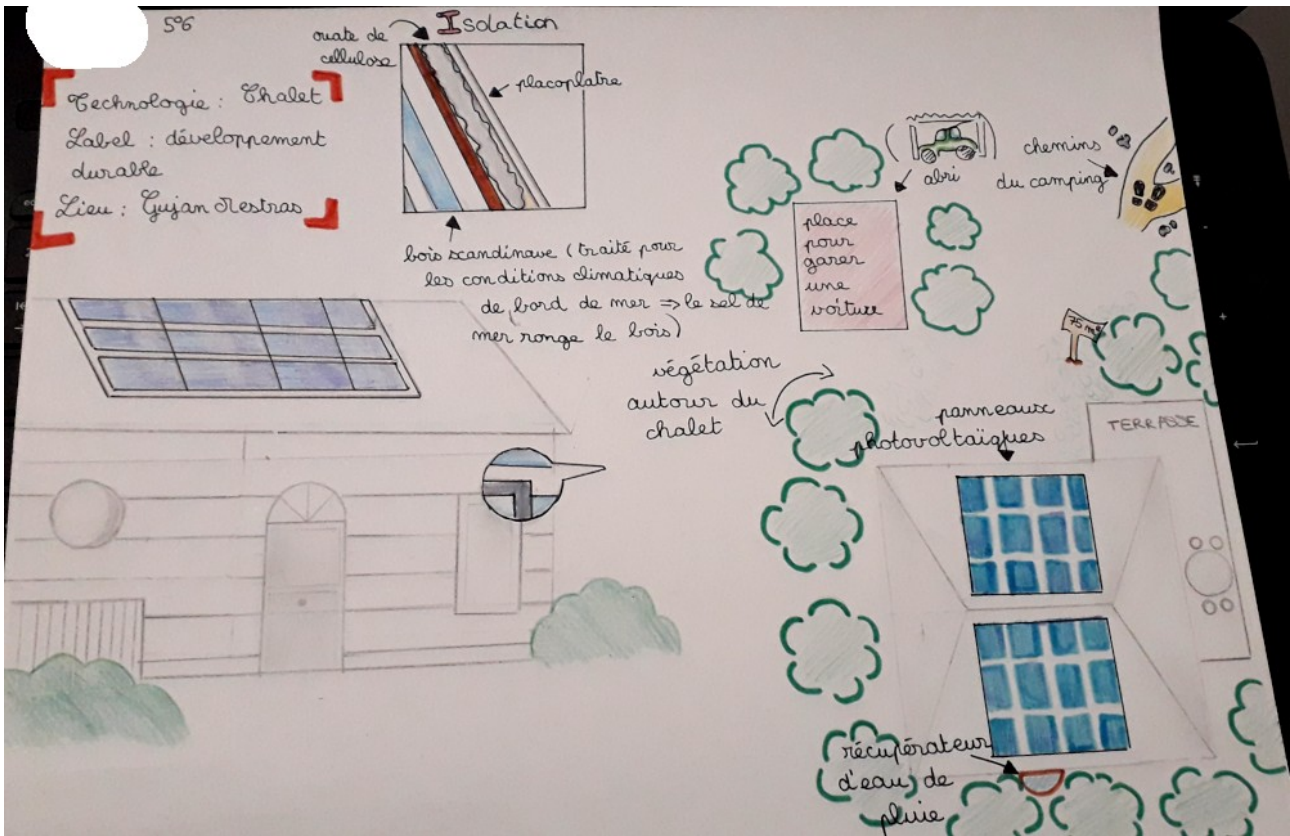 5°6
Technologie : Chalet
Label : développement
durable
Lieu : Gujan Mestras
Isolation
ouate de
cellulose
placoplatre
bois scandinave (traité pour
les conditions climatiques
de bord de mer ⇒ le sel de
mer ronge le bois)
abri
place
pour
garer
une
voiture
chemins
du camping
75 m²
végétation
autour du
chalet
panneaux
photovoltaïques
TERRASSE
récupérateur
d'eau de
pluie